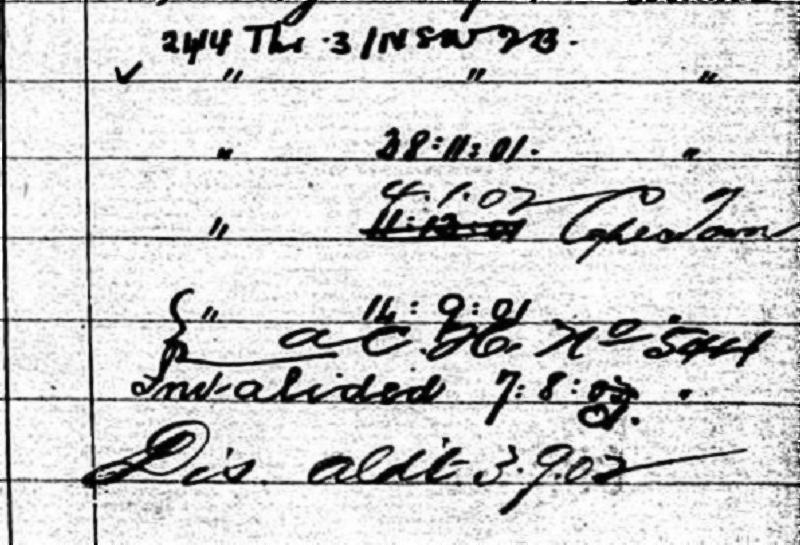 2414 The 3/NSWMB.
✓ " " "
" 28:11:01. "
4.1.02
" 11:12:01 Capetown
{ " 14:9:01
a C. H. No 5441
Invalided 7:8:02.
Dis. aldt. 3.9.02